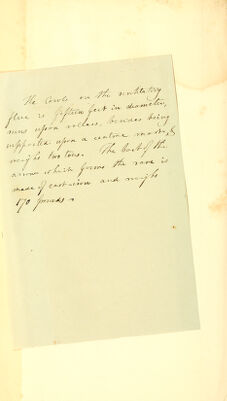 The Cowl on the ventilating
flue is fifteen feet in diameter,
runs upon rollers, besides being
supported upon a centre mast, &
weighs two tons. The bolt of the
arrow which forms the vane is
made of cast iron and weighs
170 pounds.